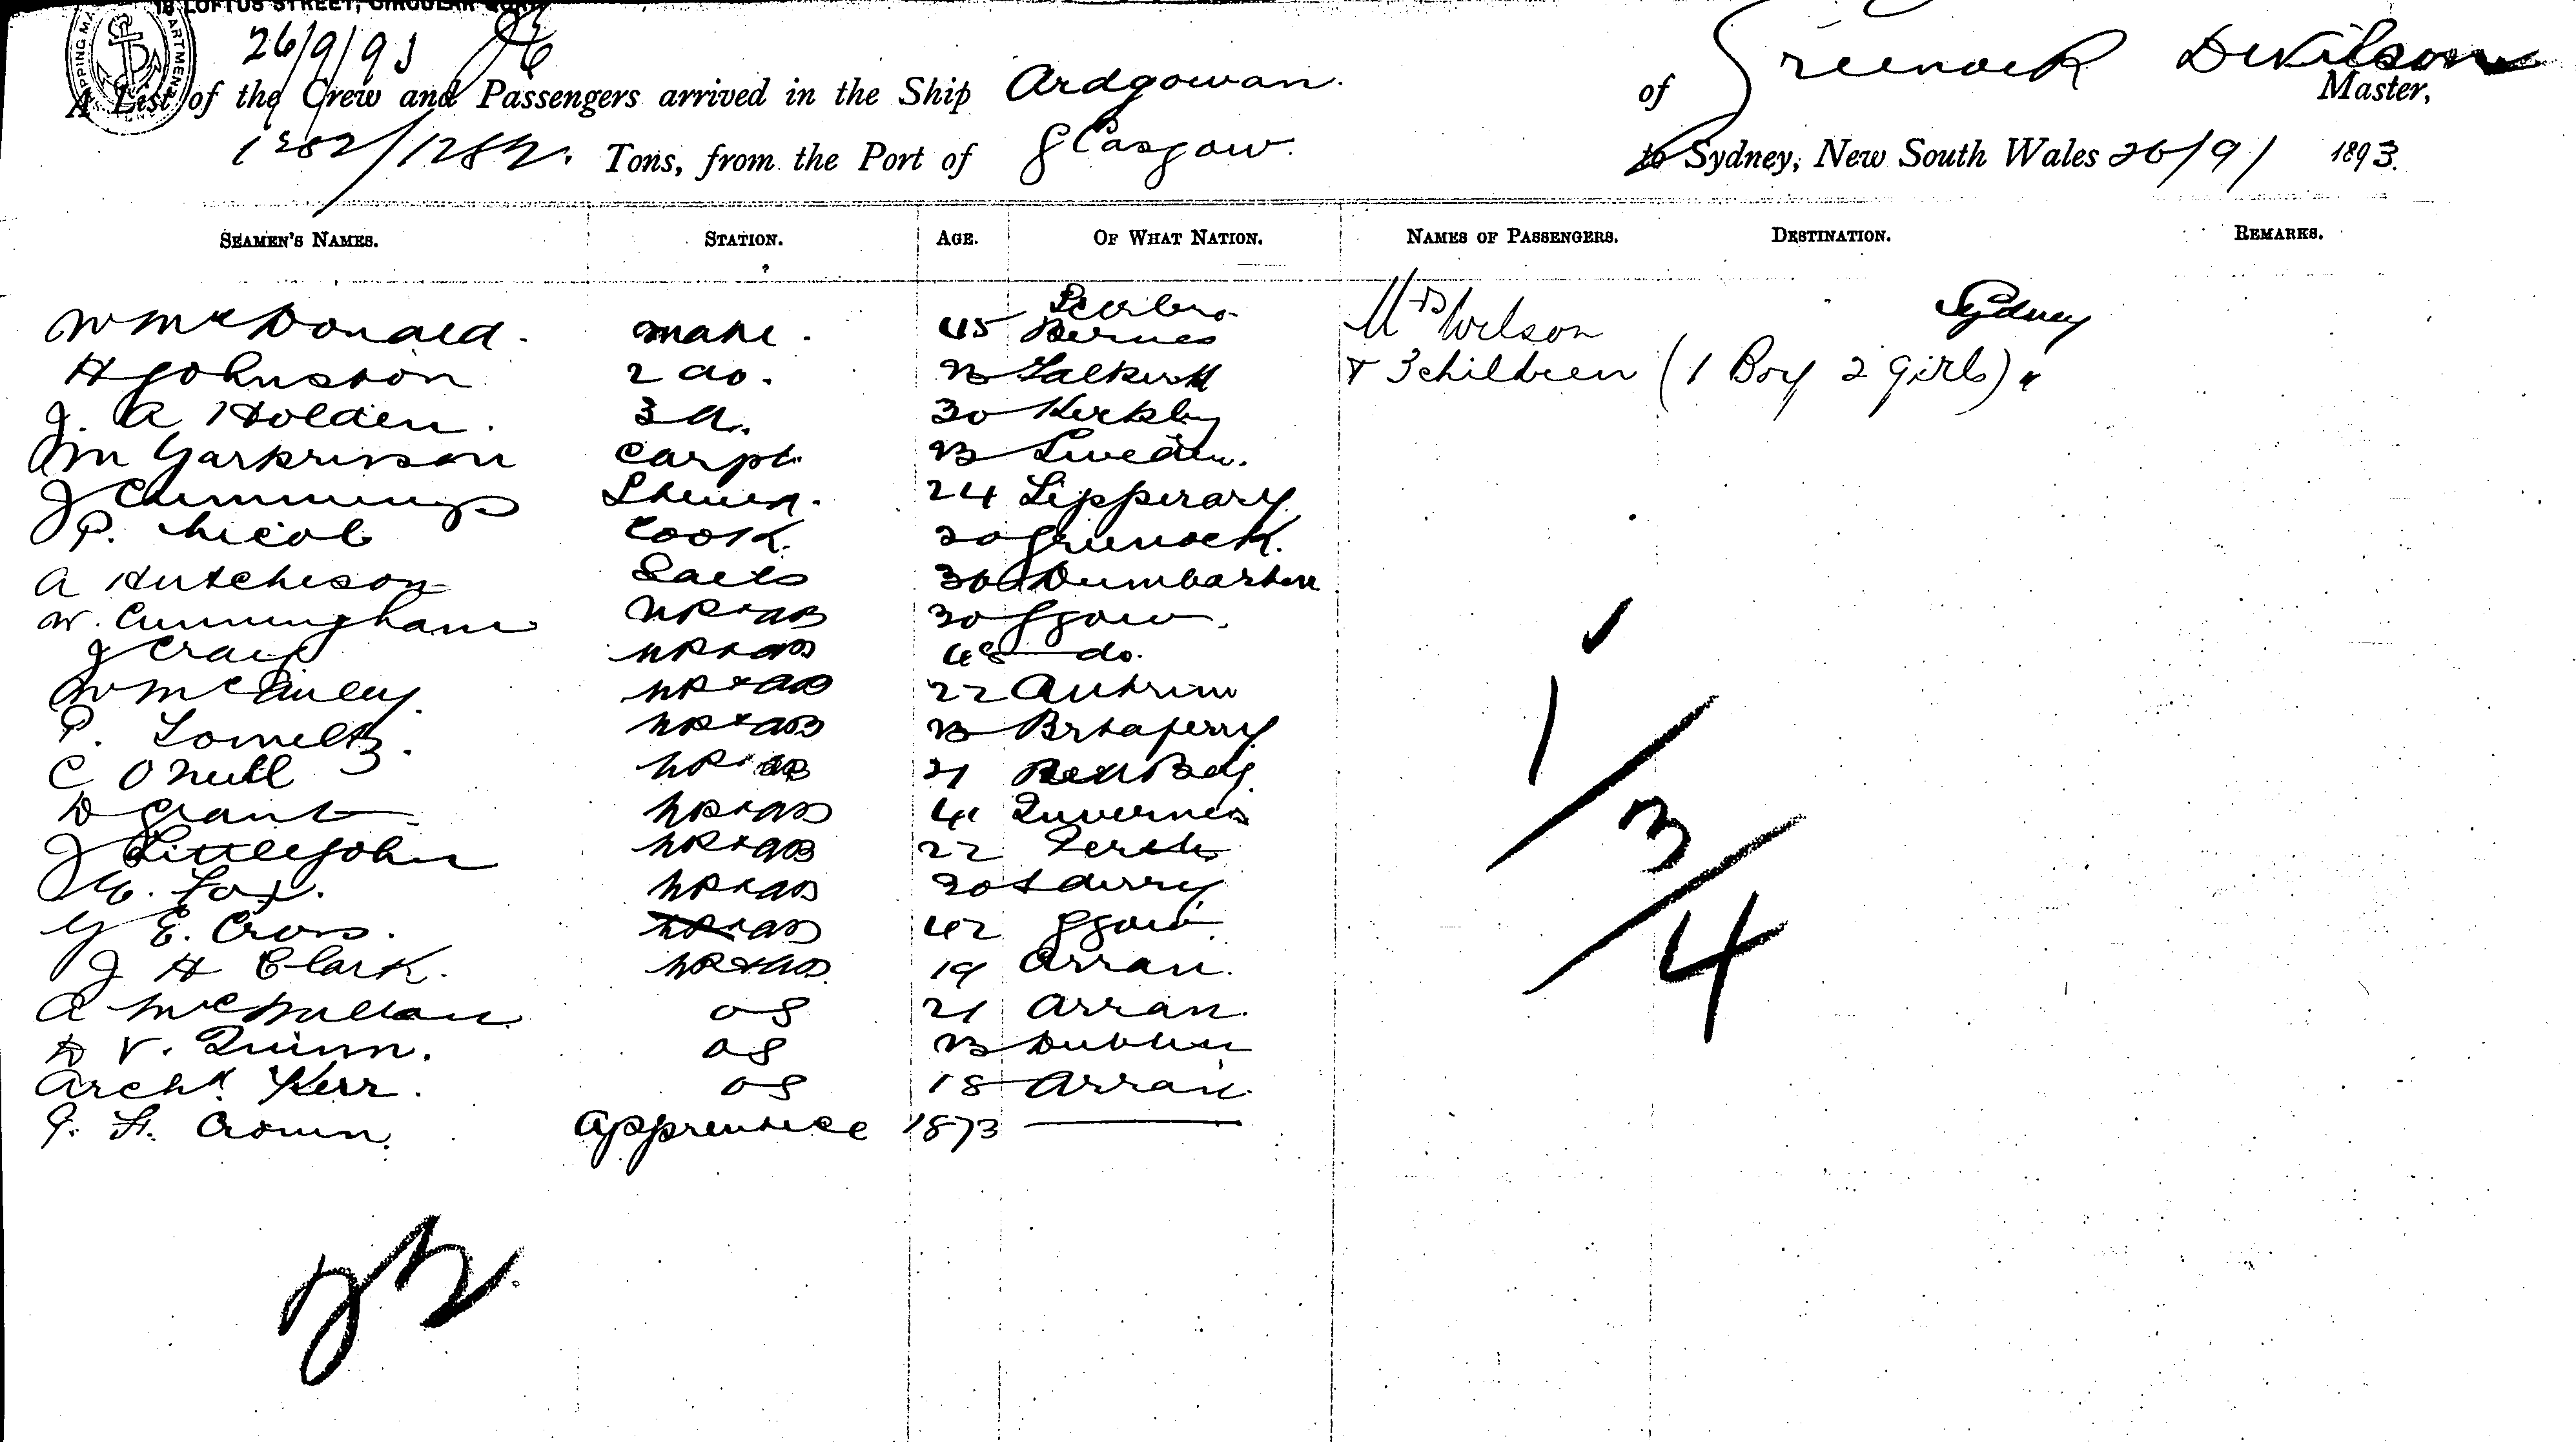 18 LOFTUS STREET, CIRCULAR QUAY
26/9/93
A List of the Crew and Passengers arrived in the Ship Ardgowan. of Greenock D Wilson Master,
1282/1282. Tons, from the Port of Glasgow. to Sydney, New South Wales 26/9/ 1893.
SEAMEN'S NAMES. STATION. AGE. OF WHAT NATION. NAMES OF PASSENGERS. DESTINATION. REMARKS.
W McDonald. mate. 45 Mrs Wilson Sydney
H Johnston 2 do. 23 Falkirk & 3 children (1 Boy 2 Girls) "
J. A Holden. 3 d. 30 Kirkby
carpt. 23 Sweden.
J Cummings Stewd. 24 Tipperary
P. Nicol Cook. 20 Greenock.
A Hutcheson Sails 30 Dumbarton
W. Cunningham 30 Ggow.
J Craig 48 do.
W McCauley. 22 Antrim
P. 23
C O Neill 21
D Grant 41 Inverness
J Littlejohn 22 Perth
Fox. 20 Lderry
G E. Cross. AB 42 Ggow.
J H Clark. 19 Arran.
A McMillan OS 21 Arran.
D V. Quinn. OS 23 Dublin
Archd. Kerr. OS 18 Arran.
J. H. Cronin. Apprentice 1873
1/3/4
22